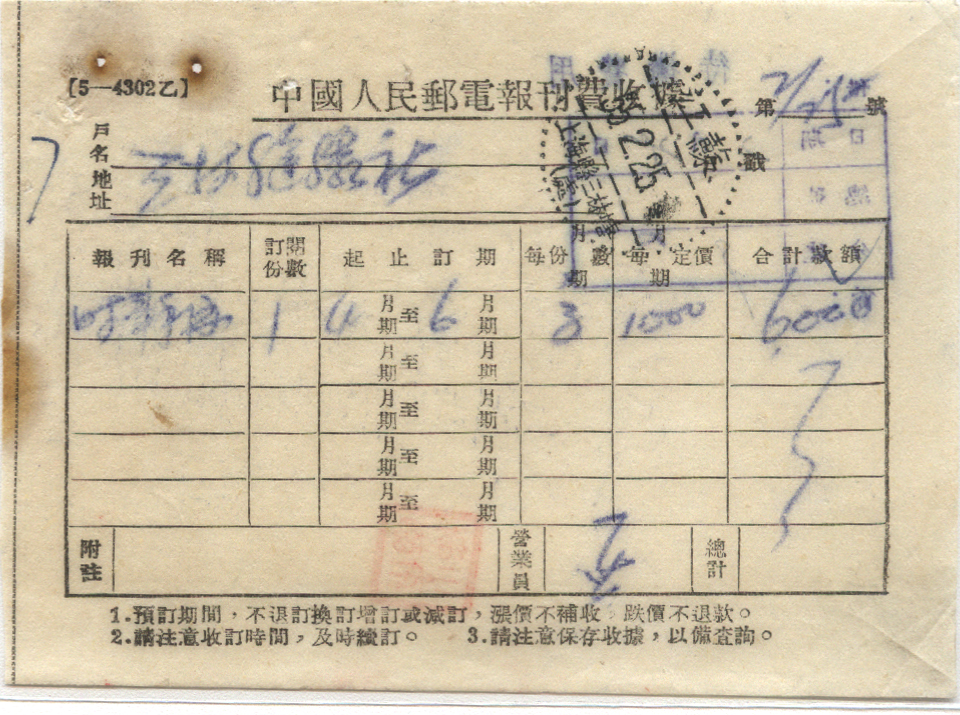 [5—4302乙]
中國人民郵電報刊費收據
第 號
戶名地址
戳
收款
2.25
上海縣三林塘
報刊名稱 訂閱份數 起止訂期 每份月期數 每月期定價 合計款額
1 4月期至6月期 3 1000 6000
月期至 月期
月期至 月期
月期至 月期
月期至 月期
附註 營業員 總計
1.預訂期間，不退訂換訂增訂或減訂，漲價不補收，跌價不退款。
2.請注意收訂時間，及時續訂。 3.請注意保存收據，以備查詢。